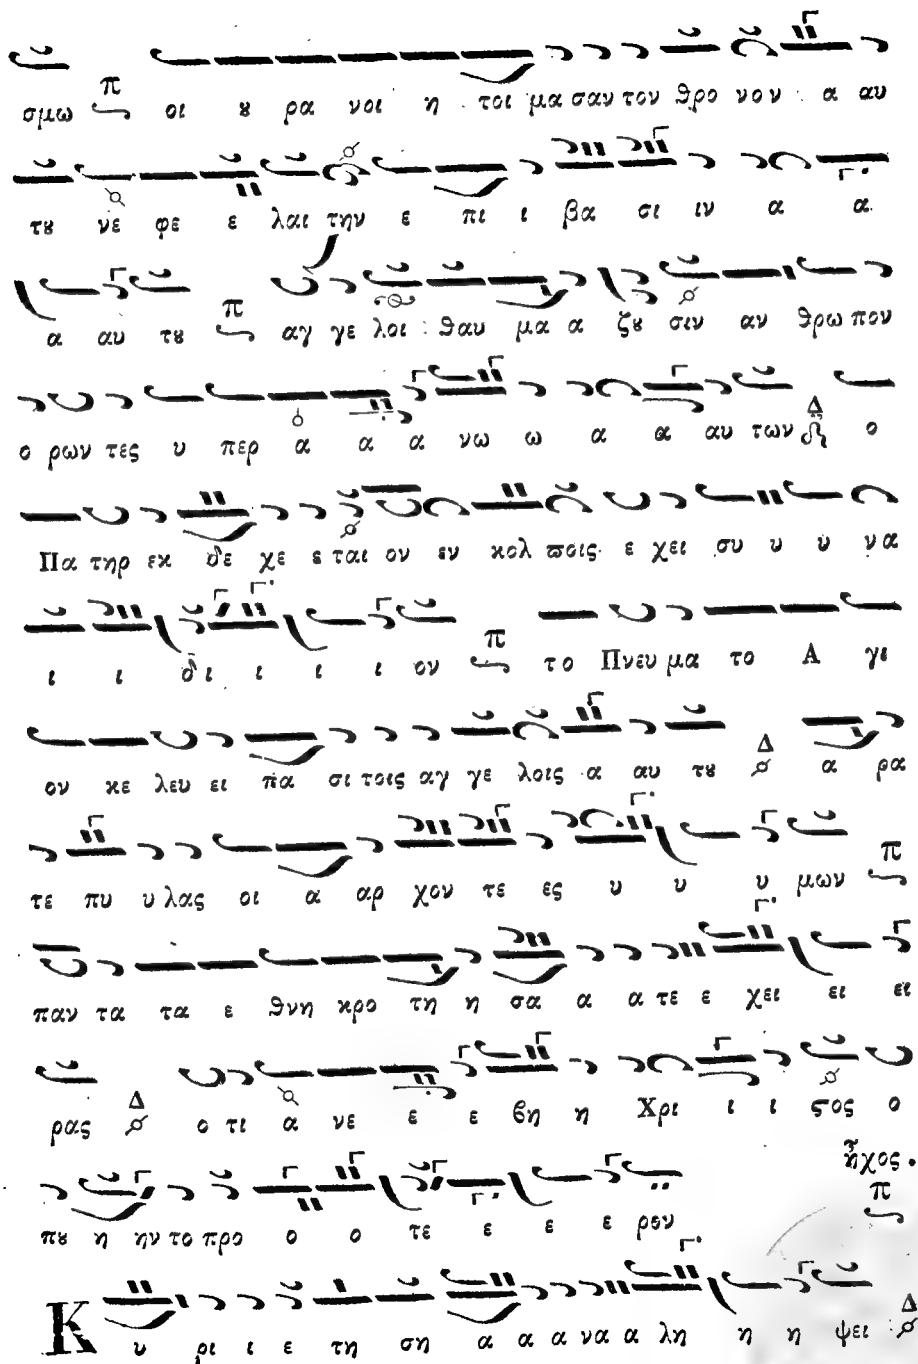 σμω π οι ȣ ρα νοι η τοι μα σαν τον θρο νον α αυ
τȣ νε φε ε λαι την ε πι ι βα σι ιν α α
α αυ τȣ π αγ γε λοι θαυ μα α ζȣ σιν αν θρω πον
ο ρων τες υ περ α α α νω ω α α αυ των Δ ο
Πα τηρ εκ δε χε ε ται ον εν κολ ποις ε χει συ υ υ να
ι ι δι ι ι ι ον π το Πνευ μα το Α γι
ον κε λευ ει πα σι τοις αγ γε λοις α αυ τȣ Δ α ρα
τε πυ υ λας οι α αρ χον τε ες υ υ υ μων π
παν τα τα ε θνη κρο τη η σα α α τε ε χει ει ει
ρας Δ ο τι α νε ε ε βη η Χρι ι ι ϛος ο
πȣ η ην το προ ο ο τε ε ε ε ρον ἦχος π
Κ υ ρι ι ε τη ση α α α να α λη η η ψει Δ